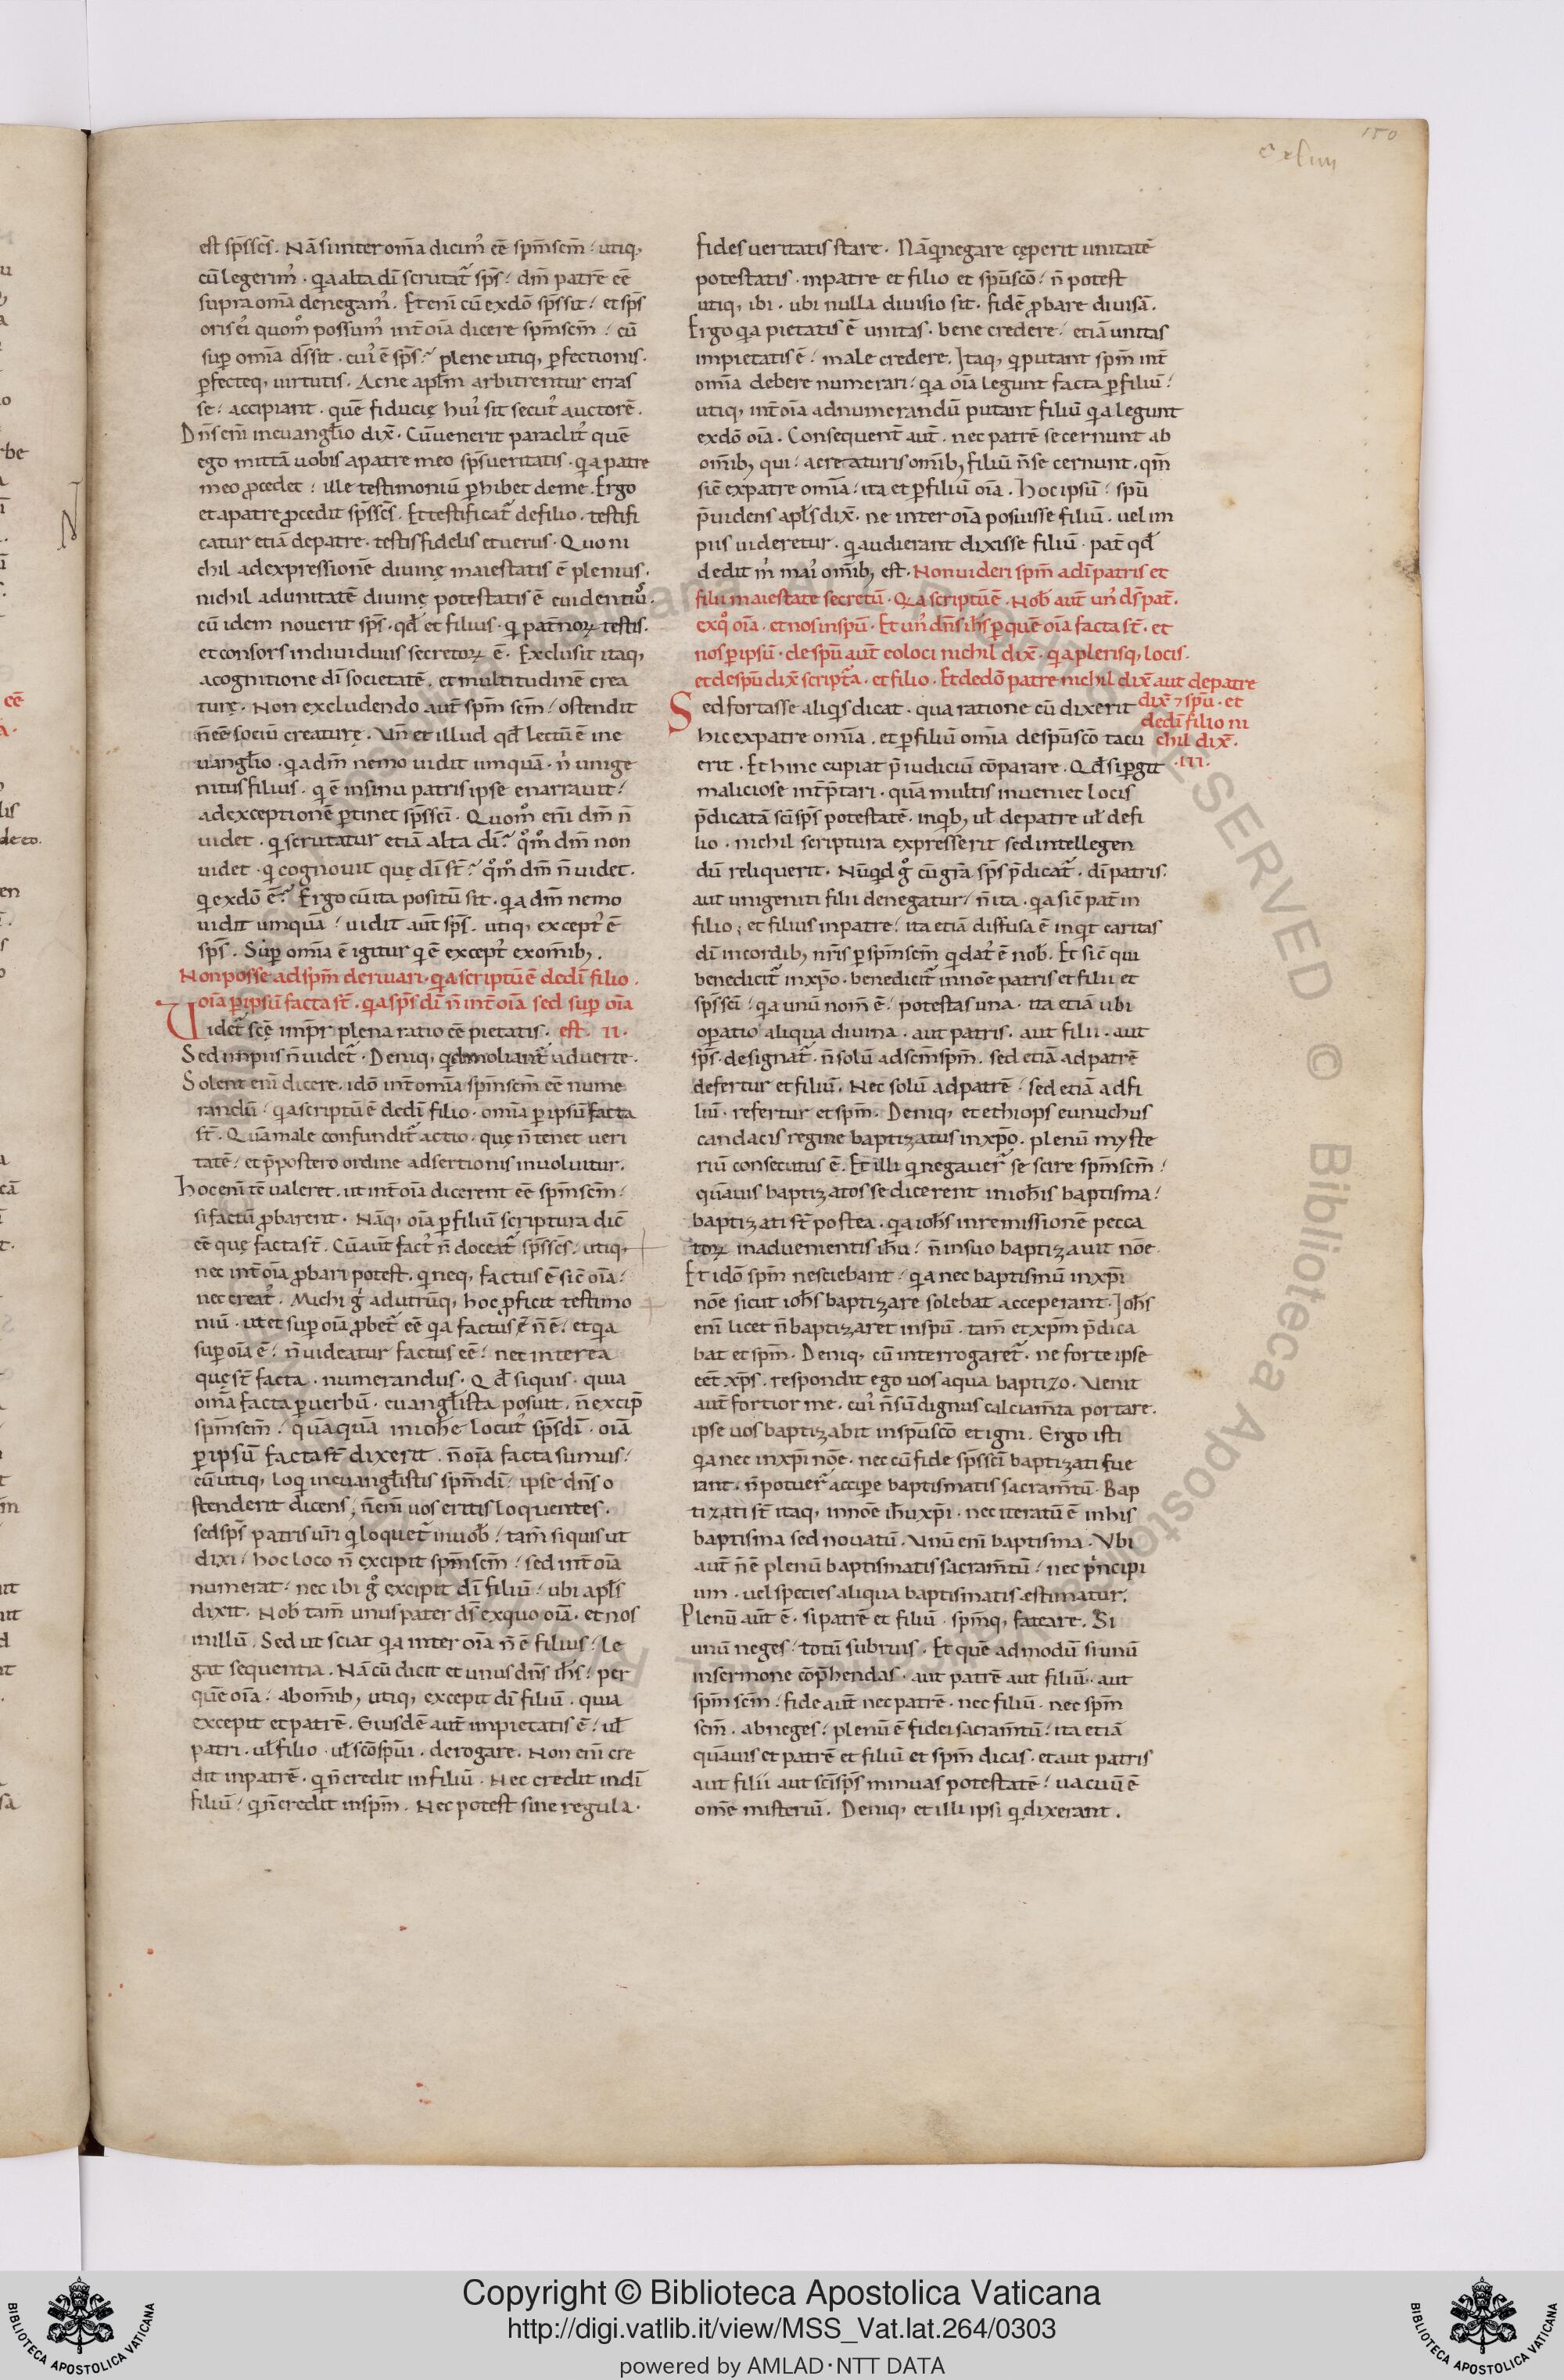 150
cxlviiii
est sp̄s sc̄s. Nā si inter om̄a dicim᷒ eē spm̄ scm̄ / utiq;
cū legerim᷒ · q̄a alta dī scrutat᷒ sp̄s / dm̄ patrē eē
supra om̄a denegam᷒. Et eni cū ex dō sp̄s sit / et sp̄s
oris ei᷒ quom̊ possum᷒ int̄ oīa dicere spm̄ scm̄ / cū
sup̱ om̄ia ds̄ sit · cui᷒ ē sp̄s? plene utiq; p̱fectionis.
p̱fecteq; uirtutis. Ac ne apl̄m arbitrentur erras
se / accipiant · quē fiducię hui᷒ sit secut᷒ auctorē.
Dn̄s eni in euangl̄io dix̄. Cū uenerit paraclit᷒ quē
ego mittā uobis a patre meo sp̄s ueritatis · q̱ a patre
meo p̱cedet / ille testimoniū p̱hibet de me. Ergo
et a patre p̱cedit sp̄s sc̄s. Et testificat᷒ de filio. testifi
catur etiā de patre. testis fidelis et uerus. Quo ni
chil ad expressionē diuinę maiestatis ē plenius.
nichil ad unitatē diuinę potestatis ē euidentius.
cū idem nouerit sp̄s · qd̄ et filius · q̱ pat̄norꝝ testis.
et consors indiuiduus secretorꝝ ē. Exclusit itaq;
a cognitione dī societatē. et multitudinē crea
turę. Non excludendo aut̄ spm̄ scm̄ / ostendit
n̄ eē sociū creaturę. Vn̄ et illud qd̄ lectū ē in e
uangl̄io · q̱a dm̄ nemo uidit umquā · n᷒ unige
nitus filius. q̱ ē in sinu patris ipse enarrauit /
ad exceptionē p̱tinet sp̄s sc̄i. Quom̊ eni dm̄ n̄
uidet · q̱ scrutatur etiā alta dī? q̊m̊ dm̄ non
uidet · q̱ cognouit quę dī st̄? q̊m̊ dm̄ n̄ uidet.
q̱ ex dō ē? Ergo cū ita positū sit · q̱a dm̄ nemo
uidit umquā / uidit aut̄ sp̄s. utiq; except᷒ ē
sp̄s. Sup̱ om̄ia ē igitur q̱ ē except᷒ ex om̄ib;.
Non posse ad spm̄ deriuari · q̱a scriptū ē de dī filio.
oīa p̱ ipsū facta st̄. q̱a sp̄s dī n̄ int̄ oīa sed sup̱ oīa
Videt᷒ scē imp̄r plena ratio eē pietatis. est. II.
Sed impiis n̄ uidet᷒. Deniq; qd moliant᷒ aduerte.
Solent eni dicere. idō int̄ omīa spm̄ scm̄ eē nume
randū / q̱a scriptū ē de dī filio. omīa p̱ ipsū facta
st̄. Quā male confundit᷒ actio. quę n̄ tenet ueri
tatē / et p̄postero ordine adsertionis inuoluitur.
Hoc eni tē ualeret. ut int̄ oīa dicerent eē spm̄ scm̄ /
si factū p̱barent. Nāq; oīa p̱ filiū scriptura dic̄
eē quę facta st̄. Cū aut̄ fact᷒ n̄ doceat᷒ sp̄s sc̄s / utiq;
nec int̄ oīa p̱bari potest. q̱ neq; factus ē sic̄ oīa /
nec creat᷒. Michi g᷒ ad utrūq; hoc p̱ficit testimo
niū · ut et sup̱ oīa p̱bet᷒ eē q̱a factus ē n̄ ē / et q̱a
sup̱ oīa ē / n̄ uideatur factus eē / nec inter ea
quę st̄ facta · numerandus. Qd̄ si quis · quia
om̄a facta p̱ uerbū · euangl̄ista posuit. n̄ excip̄
spm̄ scm̄ / quāquā in ioh̄e locut᷒ sp̄s dī · oīā
p̱ ipsū facta st̄ dixerit. n̄ oīa facta sumus /
cū utiq; loq̱ in euangl̄istis spm̄ dī / ipse dn̄s o
stenderit dicens; n̄ enī uos eritis loquentes.
sed sp̄s patris ur̄i q̱ loquet᷒ in uob̄ / tam̄ siquis ut
dixi / hoc loco n̄ excipit spm̄ scm̄ / sed int̄ oīa
numerat / nec ibi g̊ excipit dī filiū / ubi apl̄s
dixit. Nob̄ tam̄ unus pater ds̄ ex quo oīa · et nos
in illū. Sed ut sciat q̱a inter oīa n̄ ē filius / le
gat sequentia. Nā cū dicit et unus dn̄s ih̄s / per
quē oīa / ab om̄ib; utiq; excepit dī filiū · quia
excepit et patrē. Eiusdē aut̄ impietatis ē / ul̄
patri · ul̄ filio · ul̄ scō spūi. derogare. Non enī cre
dit in patrē · q̱ n̄ credit in filiū. Nec credit in dī
filiū / q̱ n̄ credit in spm̄. Nec potest sine regula.
fides ueritatis stare. Nā q̱ negare cęperit unitatē
potestatis. in patre et filio et spū scō / n̄ potest
utiq; ibi · ubi nulla diuisio sit. fidē p̱bare diuisā.
Ergo q̱a pietatis ē unitas · bene credere / etiā unitas
impietatis ē / male credere. Itaq; q̱ putant spm̄ int̄
omīa debere numerari / q̱a oīa legunt facta p̱ filiū /
utiq; int̄ oīa adnumerandū putant filiū q̱a legunt
ex dō oīa. Consequent̄ aut̄. nec patrē secernunt ab
om̄ib; qui / a creaturis om̄ib; filiū n̄ secernunt. qm̄
sic̄ ex patre omīa / ita et p̱ filiū oīa. Hoc ipsū / spū
p̄uidens apl̄s dix̄. ne inter oīa posuisse filiū. uel im
pius uideretur. q̱ audierant dixisse filiū · pat̄ qd̄
dedit m᷒ mai᷒ om̄ib; est. Non uideri spm̄ a dī patris et
filii maiestate secretū. Q̱a scriptū ē. Nob̄ aut̄ un᷒ ds̄ pat̄.
ex q̊ oīa. et nos in spū. Et un᷒ dn̄s ih̄s p̱ quē oīa facta st̄. et
nos p̱ ipsū · de spū aut̄ eo loci nichil dix̄. q̱a plerisq; locis.
et de spū dix̄ script᷒a. et filio. Et de dō patre nichil dix̄ aut de patre
dix̄ ⁊ spū. et
de dī filio ni
chil dix̄.
.III.
Sed fortasse aliq̱s dicat. qua ratione cū dixerit
hic ex patre omīa. et p̱ filiū omīa de spū scō tacu
erit. Et hinc cupiat p̄iudiciū cōparare. Qd̄ si p̱git
maliciose int̄p̄tari. quā multis inueniet locis
p̄dicatā sc̄i sp̄s potestatē. in q̱b; ul̄ de patre ul̄ de fi
lio. nichil scriptura expresserit sed intellegen
dū reliquerit. Nūq̱d g̊ cū gr̄a sp̄s p̄dicat᷒. dī patris.
aut unigeniti filii denegatur / n̄ ita. q̱a sic̄ pat̄ in
filio; et filius in patre / ita etiā diffusa ē inq̱t caritas
dī in cordib; nr̄is p̱ spm̄ scm̄ q̱ dat᷒ ē nob̄. Et sic̄ qui
benedicit᷒ in xp̄o. benedicit᷒ in nōe patris et filii et
sp̄s sc̄i / q̱a unū nom̄ ē / potestas una. ita etiā ubi
op̱atio aliqua diuina. aut patris. aut filii. aut
sp̄s. designat᷒. n̄ solū ad scm̄ spm̄. sed etiā ad patrē
defertur et filiū. Nec solū ad patrē / sed etiā ad fi
liū · refertur et spm̄. Deniq; et ethiops eunuchus
candacis regine baptizatus in xp̄o. plenū myste
riū consecutus ē. Et illi q̱ negauer᷒ se scire spm̄ scm̄ /
quāuis baptizatos se dicerent in ioh̄is baptisma /
baptizati st̄ postea. q̱a ioh̄s in remissionē pecca
torꝝ in aduenientis ih̄u / n̄ in suo baptizauit nōe.
Et idō spm̄ nesciebant / q̱a nec baptismū in xp̄i
nōe sicut ioh̄s baptizare solebat acceperant. Ioh̄s
enī licet n̄ baptizaret in spū. tam̄ et xp̄m p̄dica
bat et spm̄. Deniq; cū interrogaret᷒. ne forte ipse
eēt xp̄s. respondit ego uos aqua baptizo. Venit
aut̄ fortior me. cui᷒ n̄ sū dignus calciam̄ta portare.
ipse uos baptizabit in spū scō et igni. Ergo isti
q̱a nec in xp̄i nōe · nec cū fide sp̄s sc̄i baptizati fue
rant. n̄ potuer᷒ accip̱e baptismatis sacram̄tū. Bap
tizati st̄ itaq; in nōe ih̄u xp̄i · nec iteratū ē in his
baptisma sed nouatū. Vnū enī baptisma. Vbi
aut̄ n̄ ē plenū baptismatis sacram̄tū / nec p᷒ncipi
um · uel species aliqua baptismatis estimatur.
Plenū aut̄ ē · si patrē et filiū · spm̄q; fateare. Si
unū neges / totū subruis. Et quē admodū si unū
in sermone cōp̄hendas. aut patrē aut filiū. aut
spm̄ scm̄ / fide aut̄ nec patrē · nec filiū · nec spm̄
scm̄. abneges / plenū ē fidei sacram̄tū / ita etiā
quāuis et patrē et filiū et spm̄ dicas. et aut patris
aut filii aut sc̄i sp̄s minuas potestatē / uacuū ē
om̄e misteriū. Deniq; et illi ipsi q̱ dixerant.
Copyright © Biblioteca Apostolica Vaticana
http://digi.vatlib.it/view/MSS_Vat.lat.264/0303
powered by AMLAD·NTT DATA
BIBLIOTECA APOSTOLICA VATICANA
BIBLIOTECA APOSTOLICA VATICANA